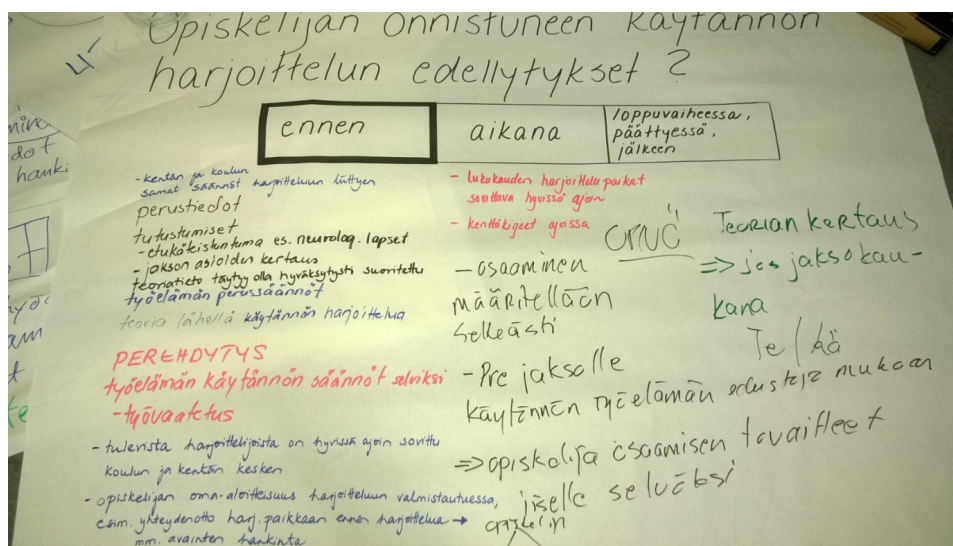 Opiskelijan onnistuneen käytännön
harjoittelun edellytykset ?
ennen
aikana
loppuvaiheessa,
päättyessä,
jälkeen
-kentän ja koulun
samat säännöt harjoitteluun liittyen
perustiedot
tutustumiset
- etukäteistuntuma es. neurolog. lapset
- jakson asioiden kertaus
teoriatieto täytyy olla hyväksytysti suoritettu
työelämän perussäännöt
teoria lähellä käytännön harjoittelua
PEREHDYTYS
työelämän käytännön säännöt selviksi
-työvaatetus
- tulevista harjoittelijoista on hyvissä ajoin sovittu
koulun ja kentän kesken
- opiskelijan oma-aloitteisuus harjoitteluun valmistautuessa,
esim. yhteydenotto harj. paikkaan ennen harjoittelua →
mm. avainten hankinta
- lukukauden harjoittelu paikat
sovittava hyvissä ajoin
- kenttäkigeet ajoissa
- osaaminen
määritellään
selkeästi
- Pre jaksolle
käytännön työelämän edustaja mukaan
=> opiskelija osaamisen tavoitteet
itselle selväksi
Teorian kertaus
=> jos jakso kau-
kana
Te / Kä